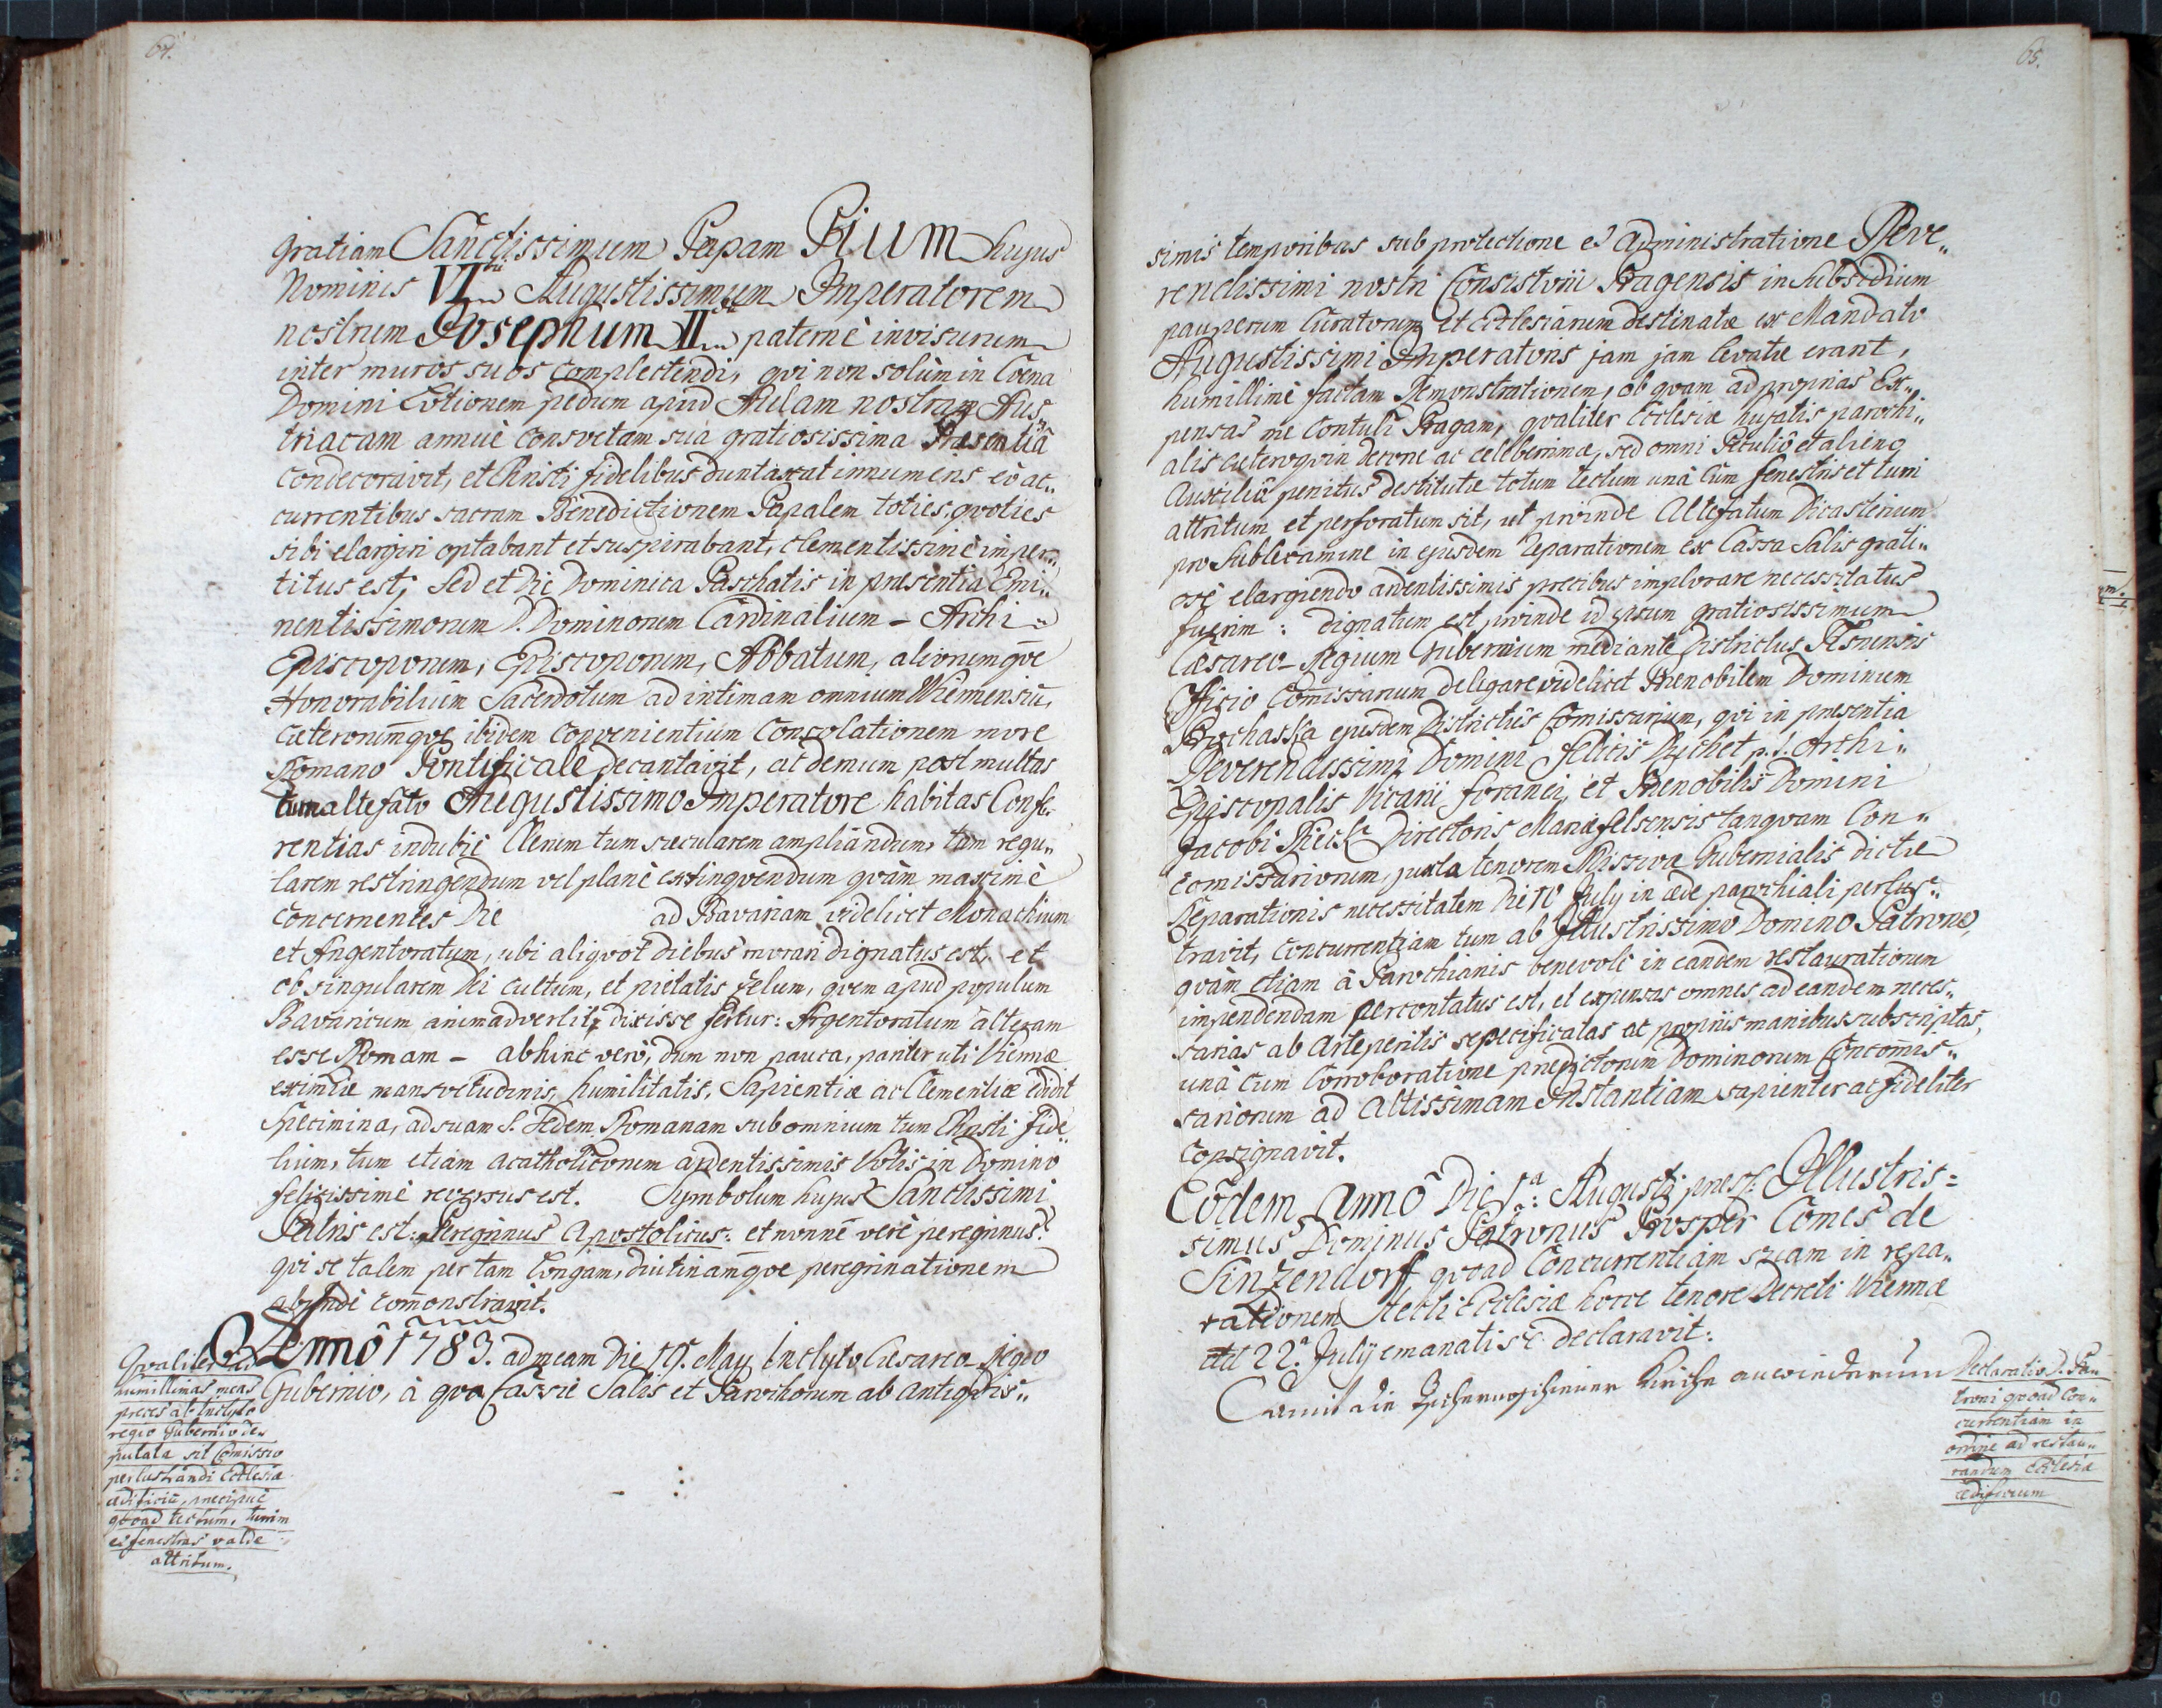 64.
gratiam Sanctissimum Papam PIUM hujus
Nominis VI.tu Augustissimum Imperatorem
nostrum Josephum II.du paternè invisurum
inter muros suos complectendi, qvi non solùm in Coena
Domini Lotionem pedum apud Aulam nostram Aus„
triacam annuè consvetam sua gratiosissima Præsentiâ
condecoravit, et Christi fidelibus duntaxat innumeris eò ac„
currentibus sacram Benedictionem Papalem toties, qvoties
sibi elargiri optabant et suspirabant, clementissimè imper„
titus est; sed et Die Dominica Paschatis in præsentia Emi„
nentissimorum D. Dominorum Cardinalium – Archi„
Episcoporum, Episcoporum, Abbatum, aliorumqve
Honorabilium Sacerdotum ad intimam omnium Viennensiu,
cæterorumqve ibidem convenientium Consolationem more
Romano Pontificale decantavit, ac demum post multas
cum altefato Augustissimo Imperatore habitas Confe„
rentias indubiè Clerum tum sæcularem ampliandum, tum regu„
larem restringendum vel planè extinqvendum qvàm maximè
concernentes Die ad Bavariam videlicet Monachium
et Argentoratum, ubi aliqvot diebus morari dignatus est, et
ob singularem Dei cultum, et pietatis zelum, qvem apud populum
Bavaricum animadvertit, dixisse fertur: Argentoratum alteram
esse Romam – abhinc verò, dum non pauca, pariter uti Viennæ
eximiæ mansvetudinis, humilitatis, Sapientiæ ac Clementiæ edidit
Specimina, ad suam S. Sedem Romanam sub omnium tum Christi fide„
lium, tum etiam acatholicorum ardentissimis Votis in Domino
felicissimè reversus est. Symbolum hujus Sanctissimi
Patris est: Peregrinus Apostolicus: et nonnè verè peregrinus?
qvi se talem per tam longam, diutinamqve peregrinationem
abundè comonstravit.
Annô 1783. ad meam Die 19. May Inclyto Cæsareo Regio
Gubernio, à qvo Cassæ Salis et Parochorum ab antiqvis„
Qvaliter ad
humillimas meas
preces ab Inclyto
regio Gubernio de„
putata sit Comissio
perlustrandi Ecclesiæ
ædificiu, præcipuè
qvoad tectum, turrim
et fenestras valde
attritum.
65.
simis temporibus sub protectione et administratione Reve„
rendissimi nostri Consistorii Pragensis in Subsidium
pauperum Curatorum et Ecclesiarum destinatæ ex Mandato
Augustissimi Imperatoris jam jam levatæ erant,
humillimè factam Remonstrationem, ob qvam ad proprias Ex„
pensas me contuli Pragam, qvaliter Ecclesiæ hujatis parochi„
alis cæteroqvin decore ac celeberrimæ, sed omni Peculiô et alieno
Auxiliô penitus destitutæ totum tectum unà cum fenestris et turri
attritum et perforatum sit, ut proinde Altefatum Dicasterium
pro Sublevamine in ejusdem reparationem ex Cassa Salis grati„
osè elargiendo ardentissimis precibus implorare necessitatus
fuerim: dignatum est proinde id ipsum gratiosissimum
Cæsareo-Regium Gubernium mediante Districtus Plsnensis
Officio Comissarium delegare videlicet Prænobilem Dominum
Prochaska ejusdem Districtûs Comissarium, qvi in præsentia
Reverendissimi Domini Felicis Puchet p. t. Archi„
Episcopalis Vicarii foranei, et Prænobilis Domini
Jacobi Riech Directoris Mariæfelsensis tanqvam Con„
comissariorum, juxta tenorem Missivæ Gubernialis dictæ
Reparationis necessitatem Die 10 July in æde parochiali perlus„
travit, concurrentiam tum ab Illustrissimo Domino Patrono,
qvàm etiam à Parochianis benevolè in eandem restaurationem
impendendam percontatus est, et expensas omnes ad eandem neces„
sarias ab Arte peritis specificatas ac propriis manibus subscriptas,
unà cum Corroboratione prædictorum Dominorum Concomis„
sariorum ad Altissimam Instantiam sapienter ac fideliter
consignavit.
Eôdem Annô Die 1.a Augusti præs. Illustris=
simus Dominus Patronus Prosper Comes de
Sinzendorf qvoad Concurrentiam suam in repa„
rationem tecti Ecclesiæ hocce tenore Decreti Viennæ
dd 22.a July emanati se declaravit:
Damit die Kirche anwiederum
Declaratio D. Pa„
troni qvoad Con„
currentiam in
ordine ad restau„
randum Ecclesiæ
ædificium